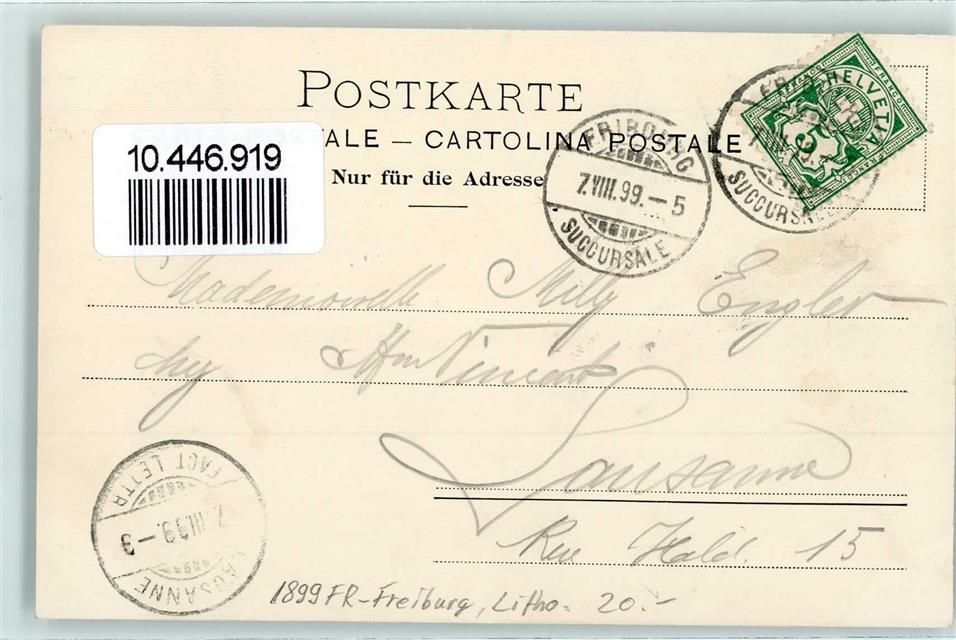 POSTKARTE
10.446.919
TALE – CARTOLINA POSTALE
Nur für die Adresse
FRIBOURG
7.VIII.99.–5
SUCCURSALE
HELVETIA
FRANCO
5
SUCCURSALE
Mademoiselle Milly Engler
by Mon Vincent
Lausanne
Rue Hald. 15
LAUSANNE
7.VIII.99.–9
FACT. LETTR
1899 FR-Freiburg, Litho. 20.-